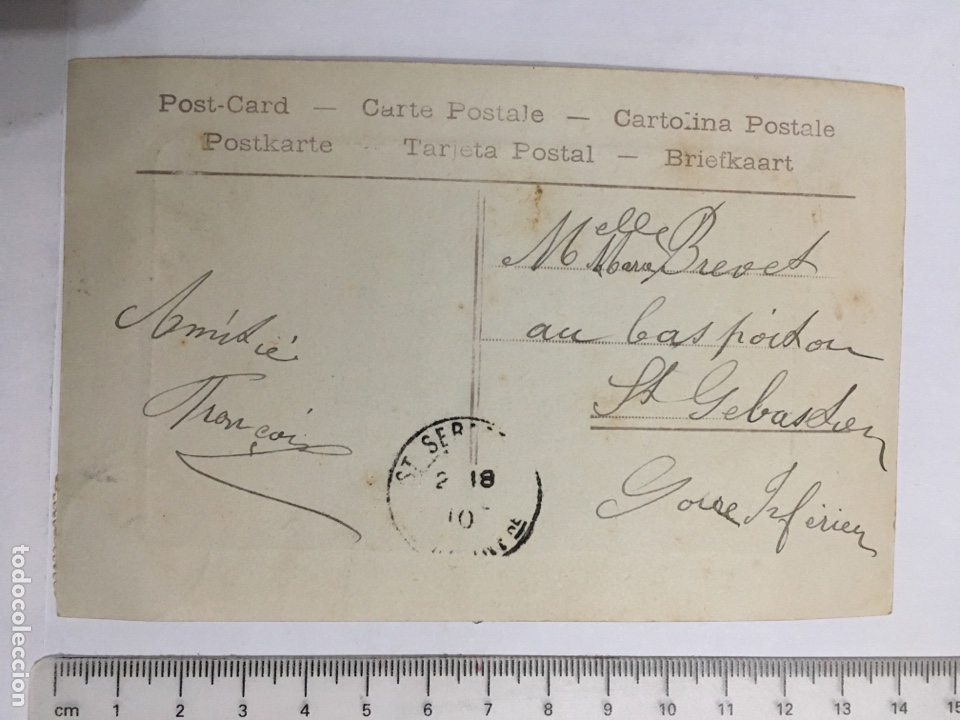 Post-Card — Carte Postale — Cartolina Postale
Postkarte Tarjeta Postal — Briefkaart
Melle Marie Brevet
au bas poiton
St Sebastien
Loire Inférieu
Amitié
François
ST SEB
2 18
10
INF RE
cm 1 2 3 4 5 6 7 8 9 10 11 12 13 14 15
todocoleccion